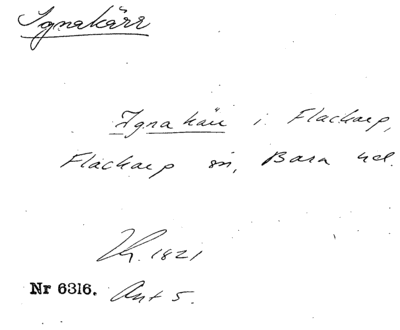 Ignakärr
Ignakärr i Flackarp,
Flackarp sn, Bara hd.
Kr. 1821
Nr 6316. Ant 5.